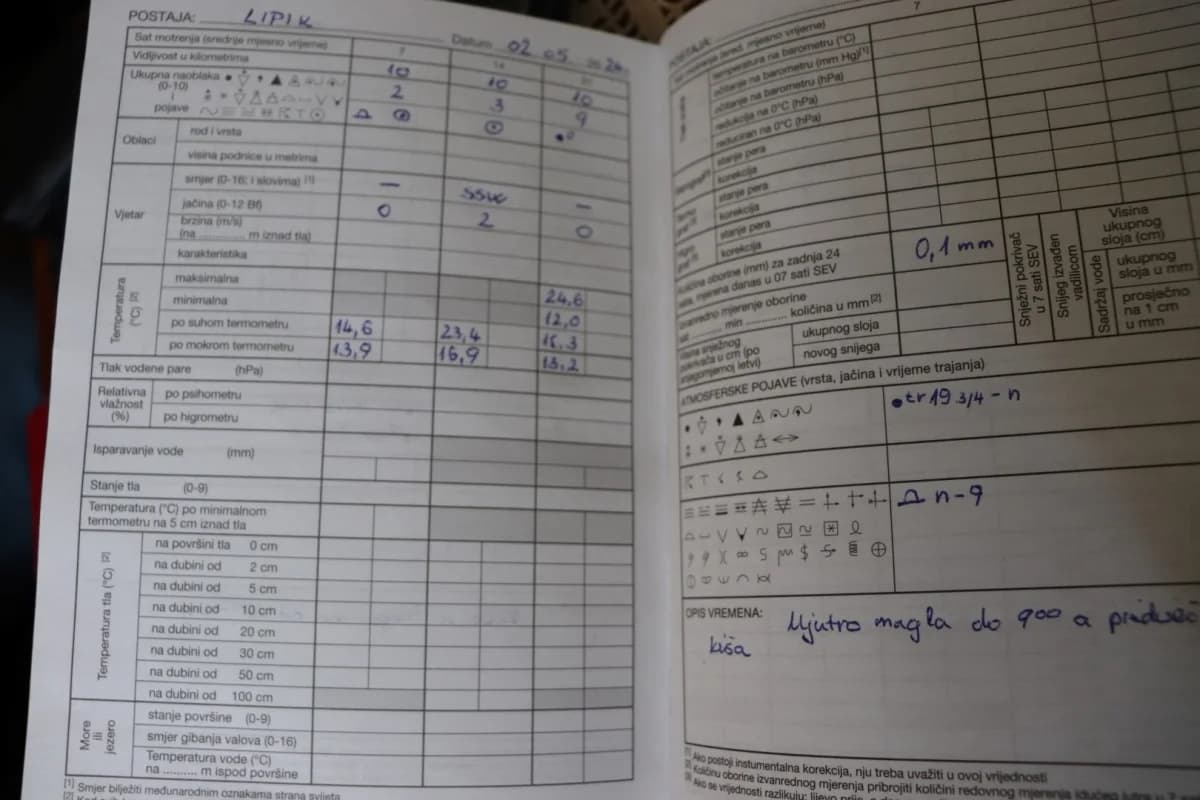 POSTAJA: LIPIK
Datum 02 05 2024.
Sat motrenja (srednje mjesno vrijeme) 7 14
Vidljivost u kilometrima 10 10 10
Ukupna naoblaka (0-10) 2 3 9
i
pojave
Oblaci
rod i vrsta
visina podnice u metrima
Vjetar
smjer (0-16; i slovima) [1] – SSW –
jačina (0-12 Bf) 0 2 0
brzina (m/s)
(na .......... m iznad tla)
karakteristika
Temperatura (°C) [2]
maksimalna 24,6
minimalna 12,0
po suhom termometru 14,6 23,4
po mokrom termometru 13,9 16,9 13,2
Tlak vodene pare (hPa)
Relativna vlažnost (%)
po psihometru
po higrometru
Isparavanje vode (mm)
Stanje tla (0-9)
Temperatura (°C) po minimalnom
termometru na 5 cm iznad tla
Temperatura tla (°C) [2]
na površini tla 0 cm
na dubini od 2 cm
na dubini od 5 cm
na dubini od 10 cm
na dubini od 20 cm
na dubini od 30 cm
na dubini od 50 cm
na dubini od 100 cm
More ili jezero
stanje površine (0-9)
smjer gibanja valova (0-16)
Temperatura vode (°C)
na .......... m ispod površine
[1] Smjer bilježiti međunarodnim oznakama strana svijeta
[2]
7
POSTAJA:
motrenja (sred. mjesno vrijeme)
temperatura na barometru (°C)
očitanje na barometru (mm Hg)[1]
očitanje na barometru (hPa)
redukcija na 0°C (hPa)
reduciran na 0°C (hPa)
stanje pera
korekcija
stanje pera
korekcija
stanje pera
korekcija
Količina oborine (mm) za zadnja 24
sata, mjerena danas u 07 sati SEV 0,1 mm
Izvanredno mjerenje oborine
sat .......... min .......... količina u mm[2]
Visina snježnog
pokrivača u cm (po
snjegomjernoj letvi)
ukupnog sloja
novog snijega
Snježni pokrivač
u 7 sati SEV
Snijeg izvađen
vadilicom
Visina
ukupnog
sloja (cm)
Sadržaj vode
ukupnog
sloja u mm
prosječno
na 1 cm
u mm
ATMOSFERSKE POJAVE (vrsta, jačina i vrijeme trajanja)
tr 19 3/4 - n
n-9
OPIS VREMENA: Ujutro magla do 900 a predveč
kiša
[1] Ako postoji instumentalna korekcija, nju treba uvažiti u ovoj vrijednosti
[2] Količinu oborine izvanrednog mjerenja pribrojiti količini redovnog mjerenja
[3] Ako se vrijednosti razlikuju: